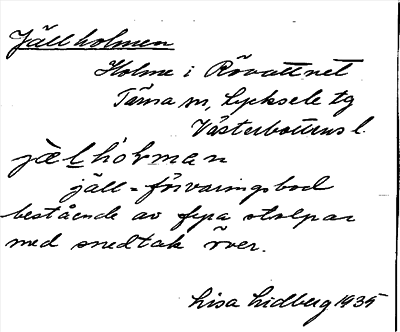 Jällholmen
Holme i Rövattnet
Tärna sn, Lycksele tg
Västerbottens l.
jæl hólman
jäll = förvaringsbod
bestående av fyra stolpar
med snedtak över.
Lisa Lidberg 1935